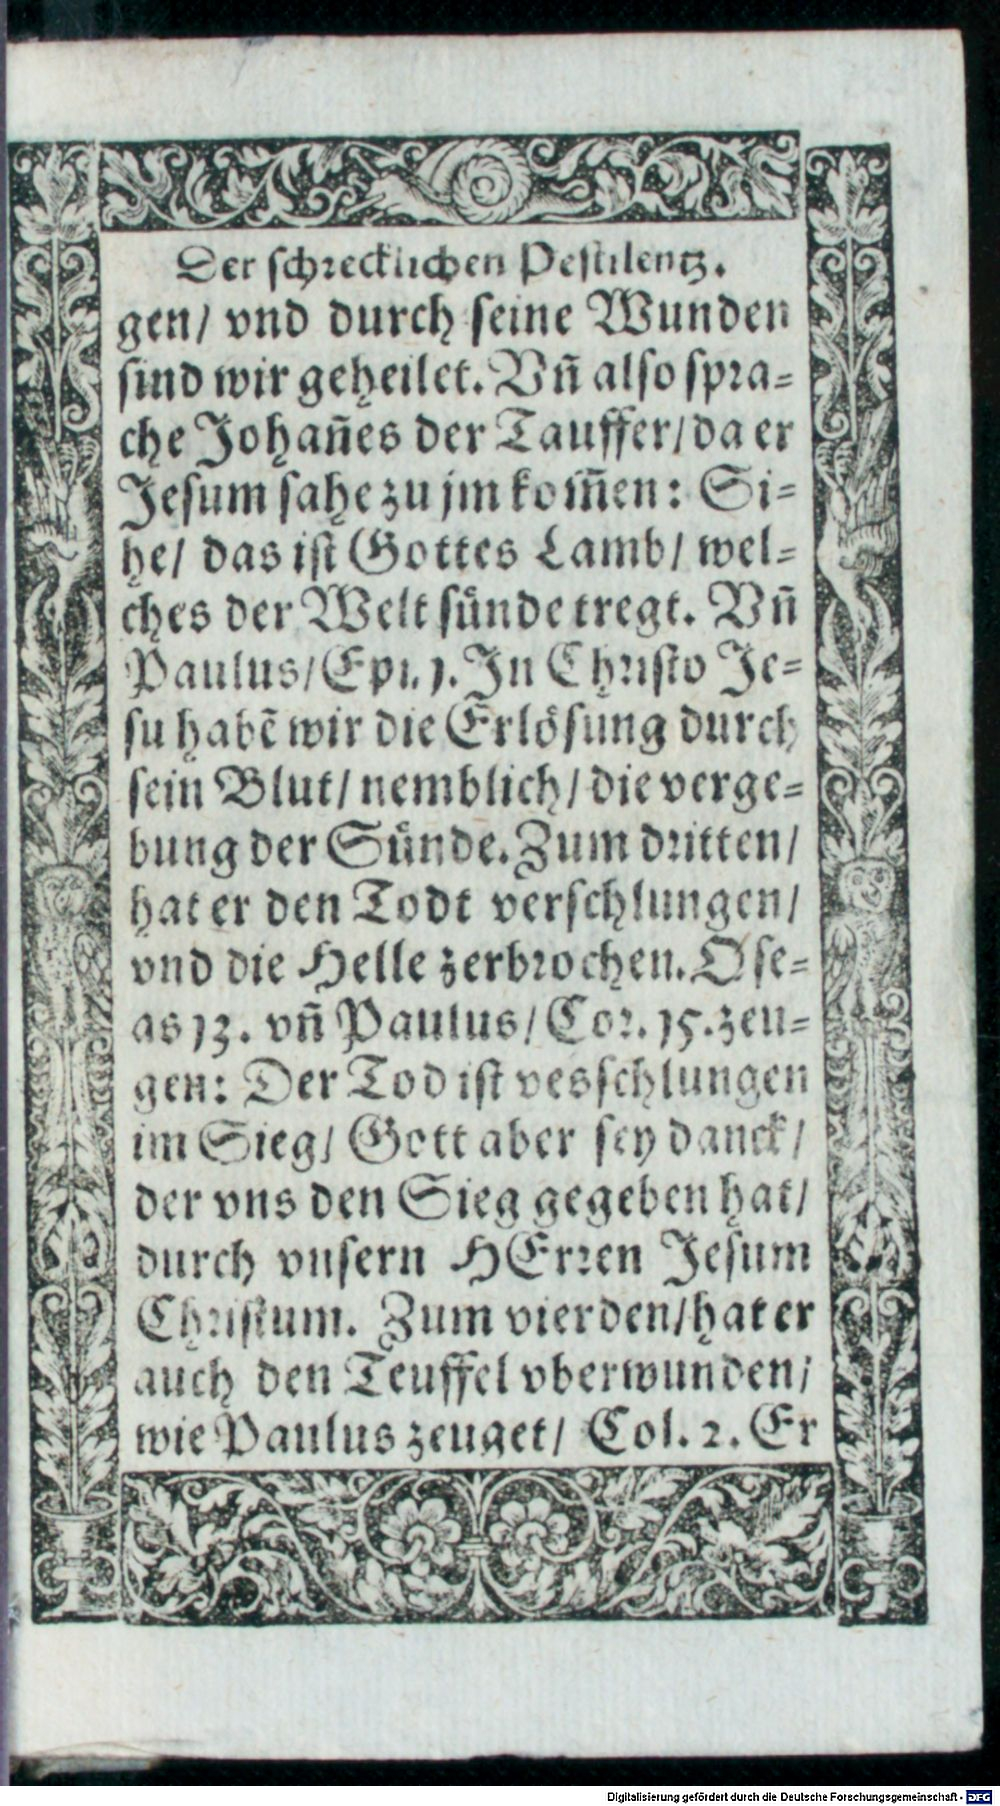 Der schrecklichen Pestilentz.
gen/ vnd durch seine Wunden
sind wir geheilet. Vn̄ also spra-
che Johan̄es der Tauffer/ da er
Jesum sahe zu jm kom̄en: Si-
he/ das ist Gottes Lamb/ wel-
ches der Welt sůnde tregt. Vn̄
Paulus/ Epi. 1. In Christo Je-
su habē wir die Erlösung durch
sein Blut/ nemblich/ die verge-
bung der Sůnde. Zum dritten/
hat er den Todt verschlungen/
vnd die Helle zerbrochen. Ose-
as 13. vn̄ Paulus/ Cor. 15. zeu-
gen: Der Tod ist vesschlungen
im Sieg/ Gott aber sey danck/
der vns den Sieg gegeben hat/
durch vnsern HErren Jesum
Christum. Zum vierden/ hat er
auch den Teuffel vberwunden/
wie Paulus zeuget/ Col. 2. Er
Digitalisierung gefördert durch die Deutsche Forschungsgemeinschaft - DFG